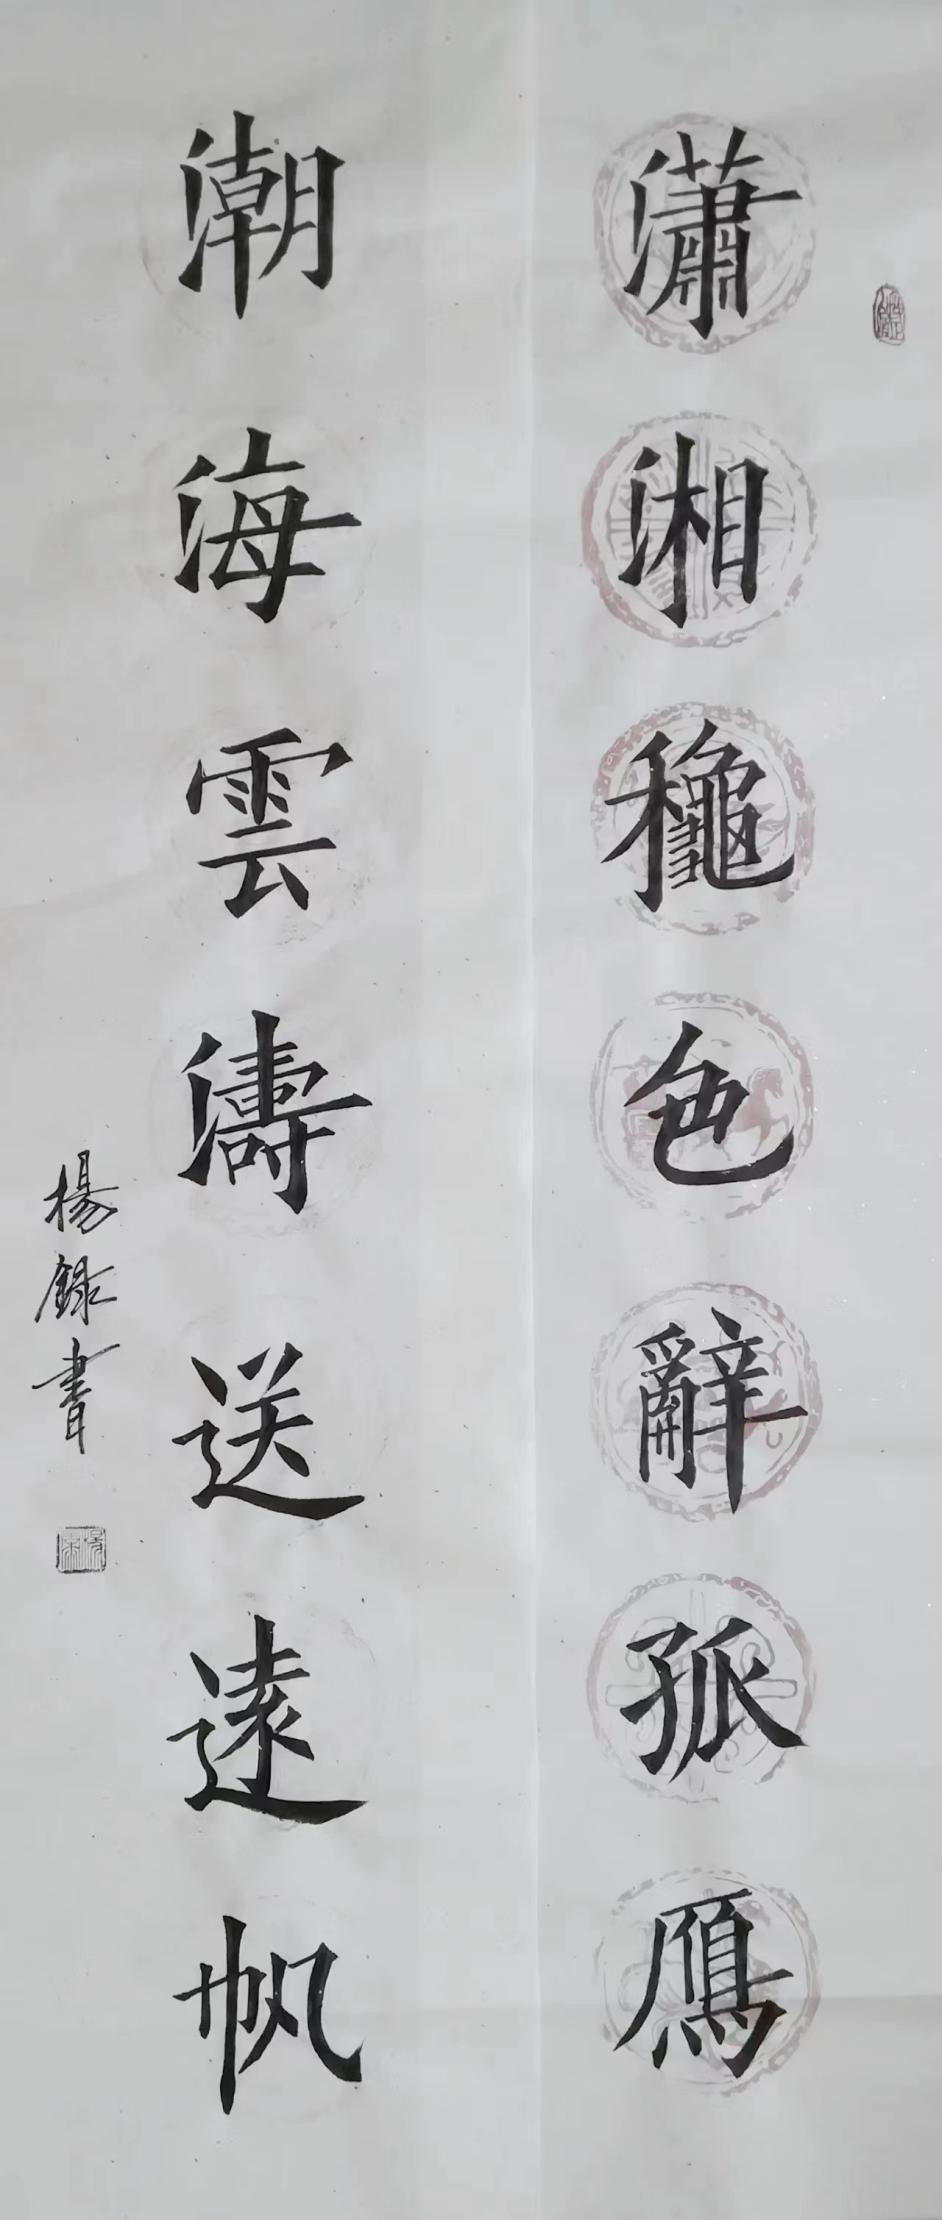 瀟湘龝色辭孤鴈
潮海雲濤送遠帆
楊錄書